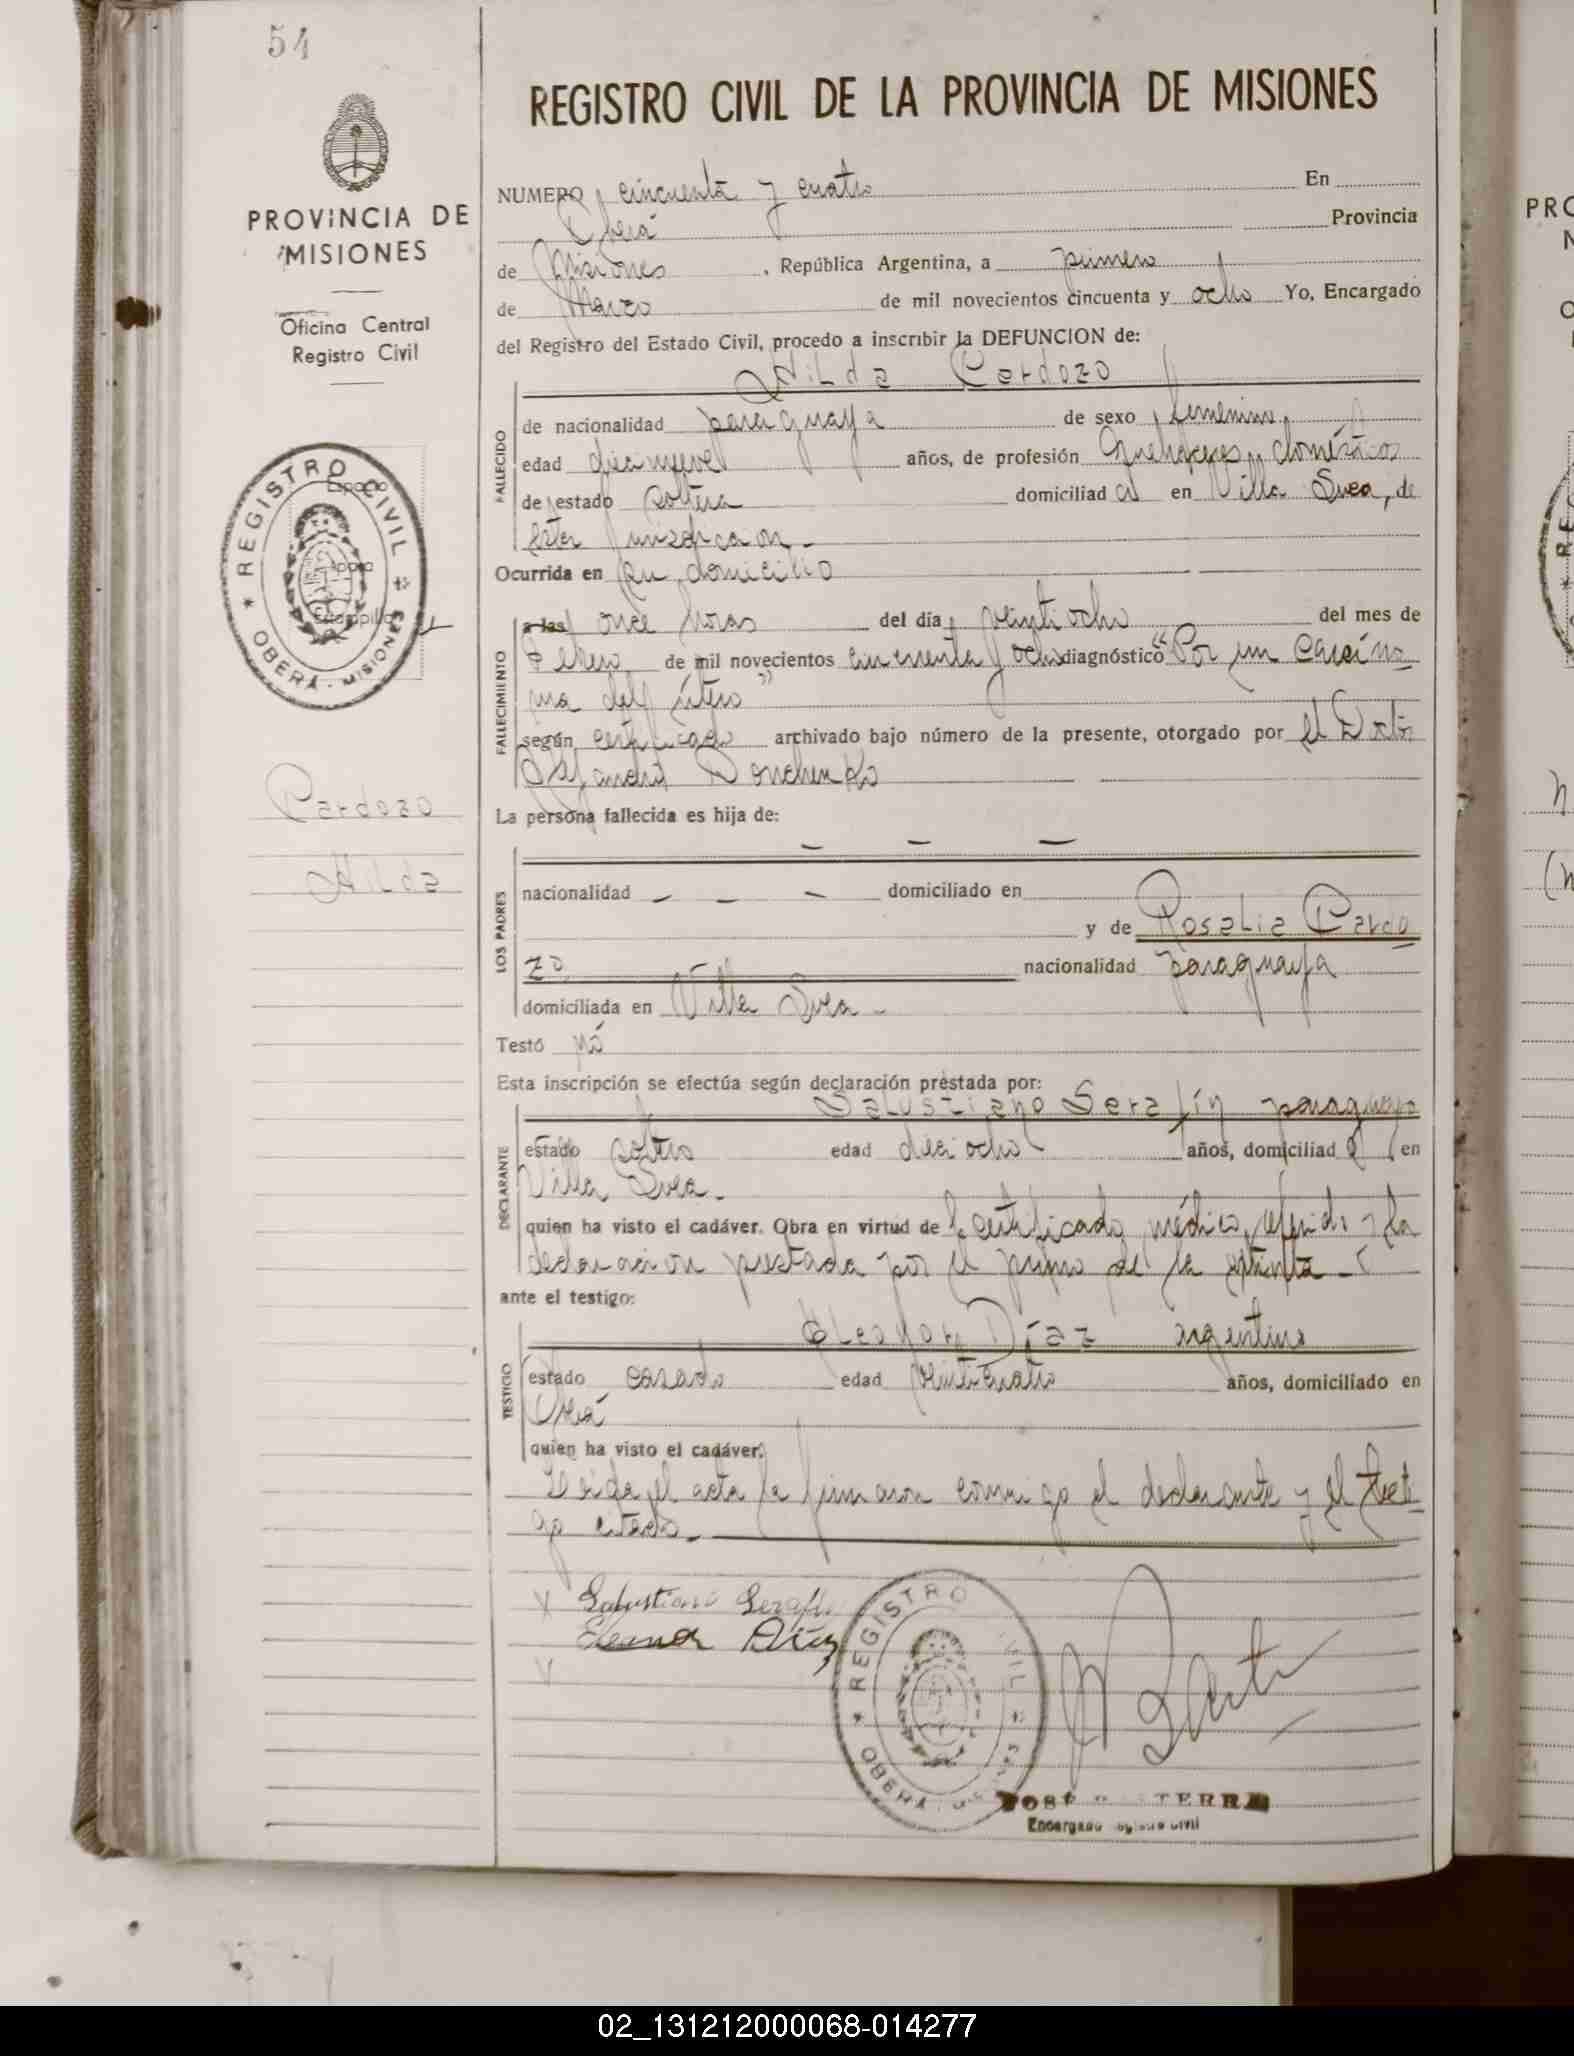 54
PROVINCIA DE
MISIONES
Oficina Central
Registro Civil
REGISTRO CIVIL
OBERÁ - MISIONES
Espacio
para
Estampilla
Cardozo
Hilda
REGISTRO CIVIL DE LA PROVINCIA DE MISIONES
NUMERO cincuenta y cuatro En
Oberá Provincia
de Misiones, República Argentina, a primero
de Marzo de mil novecientos cincuenta y ocho Yo, Encargado
del Registro del Estado Civil, procedo a inscribir la DEFUNCION de:
Hilda Cardozo
FALLECIDO
de nacionalidad paraguaya de sexo femenino
edad diecinueve años, de profesión Quehaceres domésticos
de estado soltera domiciliada en Villa Svea, de
esta jurisdicción.-
Ocurrida en su domicilio
FALLECIMIENTO
a las once horas del día veintiocho del mes de
Febrero de mil novecientos cincuenta y ocho diagnóstico "Por un carcino
ma del útero"
según certificado archivado bajo número de la presente, otorgado por el Doctor
Alejandro Donchenko
La persona fallecida es hija de:
— — —
LOS PADRES
nacionalidad — — — domiciliado en
y de Rosalia Cardo
zo nacionalidad paraguaya
domiciliada en Villa Svea -
Testó nó
Esta inscripción se efectúa según declaración prestada por:
Salustiano Serafín paraguayo
DECLARANTE
estado soltero edad dieciocho años, domiciliado en
Villa Svea.-
quien ha visto el cadáver. Obra en virtud de la certificado médico referido y la
declaración prestada por el primo de la extinta -
ante el testigo:
Eleonor Díaz argentino
TESTIGO
estado casado edad veinticuatro años, domiciliado en
Oberá
quien ha visto el cadáver.
Leida el acta la firmaron conmigo el declarante y el testi
go citado.-
X Salustiano Serafin
Eleonor Díaz
REGISTRO CIVIL
OBERÁ - MISIONES
JOSE TERRA
Encargado Registro Civil
02_131212000068-014277